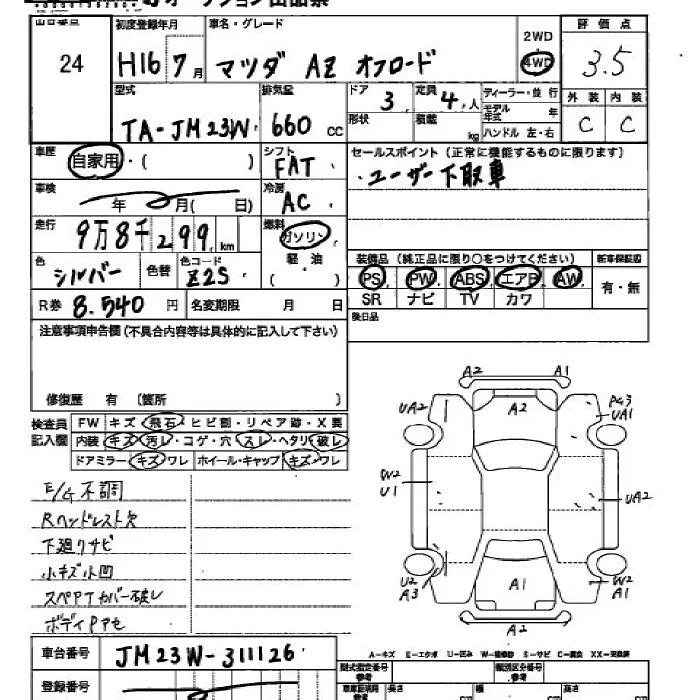 出品番号 初度登録年月 車名・グレード 2WD 4WD 評価点
24 H16 7月 マツダ AZ オフロード 3.5
型式 排気量 ドア 3 定員 4人 ディーラー・並行 外装 内装
TA-JM23W 660cc 形状 積載 kg モデル年式 年 C C
ハンドル 左・右
車歴 自家用・( ) シフト FAT セールスポイント(正常に機能するものに限ります)
・ユーザー下取車
車検 年 月( 日) 冷房 AC
走行 9万8千299km 燃料 ガソリン
軽油
( )
装備品(純正品に限り○をつけてください) 新車保証書
色 シルバー 色替 色コード Z2S PS PW ABS エアB AW 有・無
R券 8.540円 名変期限 月 日 SR ナビ TV カワ
後日品
注意事項申告欄(不具合内容等は具体的に記入して下さい)
修復歴 有 〔箇所 〕
検査員記入欄 FW キズ・飛石・ヒビ割・リペア跡・X要
内装 キズ・汚レ・コゲ・穴・スレ・ヘタリ・破レ
ドアミラー キズ・ワレ ホイール・キャップ キズ・ワレ
E/G不調
Rヘッドレスト欠
下廻りサビ
小キズ小凹
スペアTカバー破レ
ボディPアセ
A2 A1
UA2 A2 P43 UA1
W2 U1 UA2
U2 A3 A1 W2 A1
A2
A-キズ E-エクボ U-凹み W-補修跡 S-サビ C-腐食 XX-交換済
車台番号 JM23W-311126
登録番号
型式指定番号 参考 類別区分番号 参考
車車証明用 参考 長さ cm 幅 cm 高さ cm